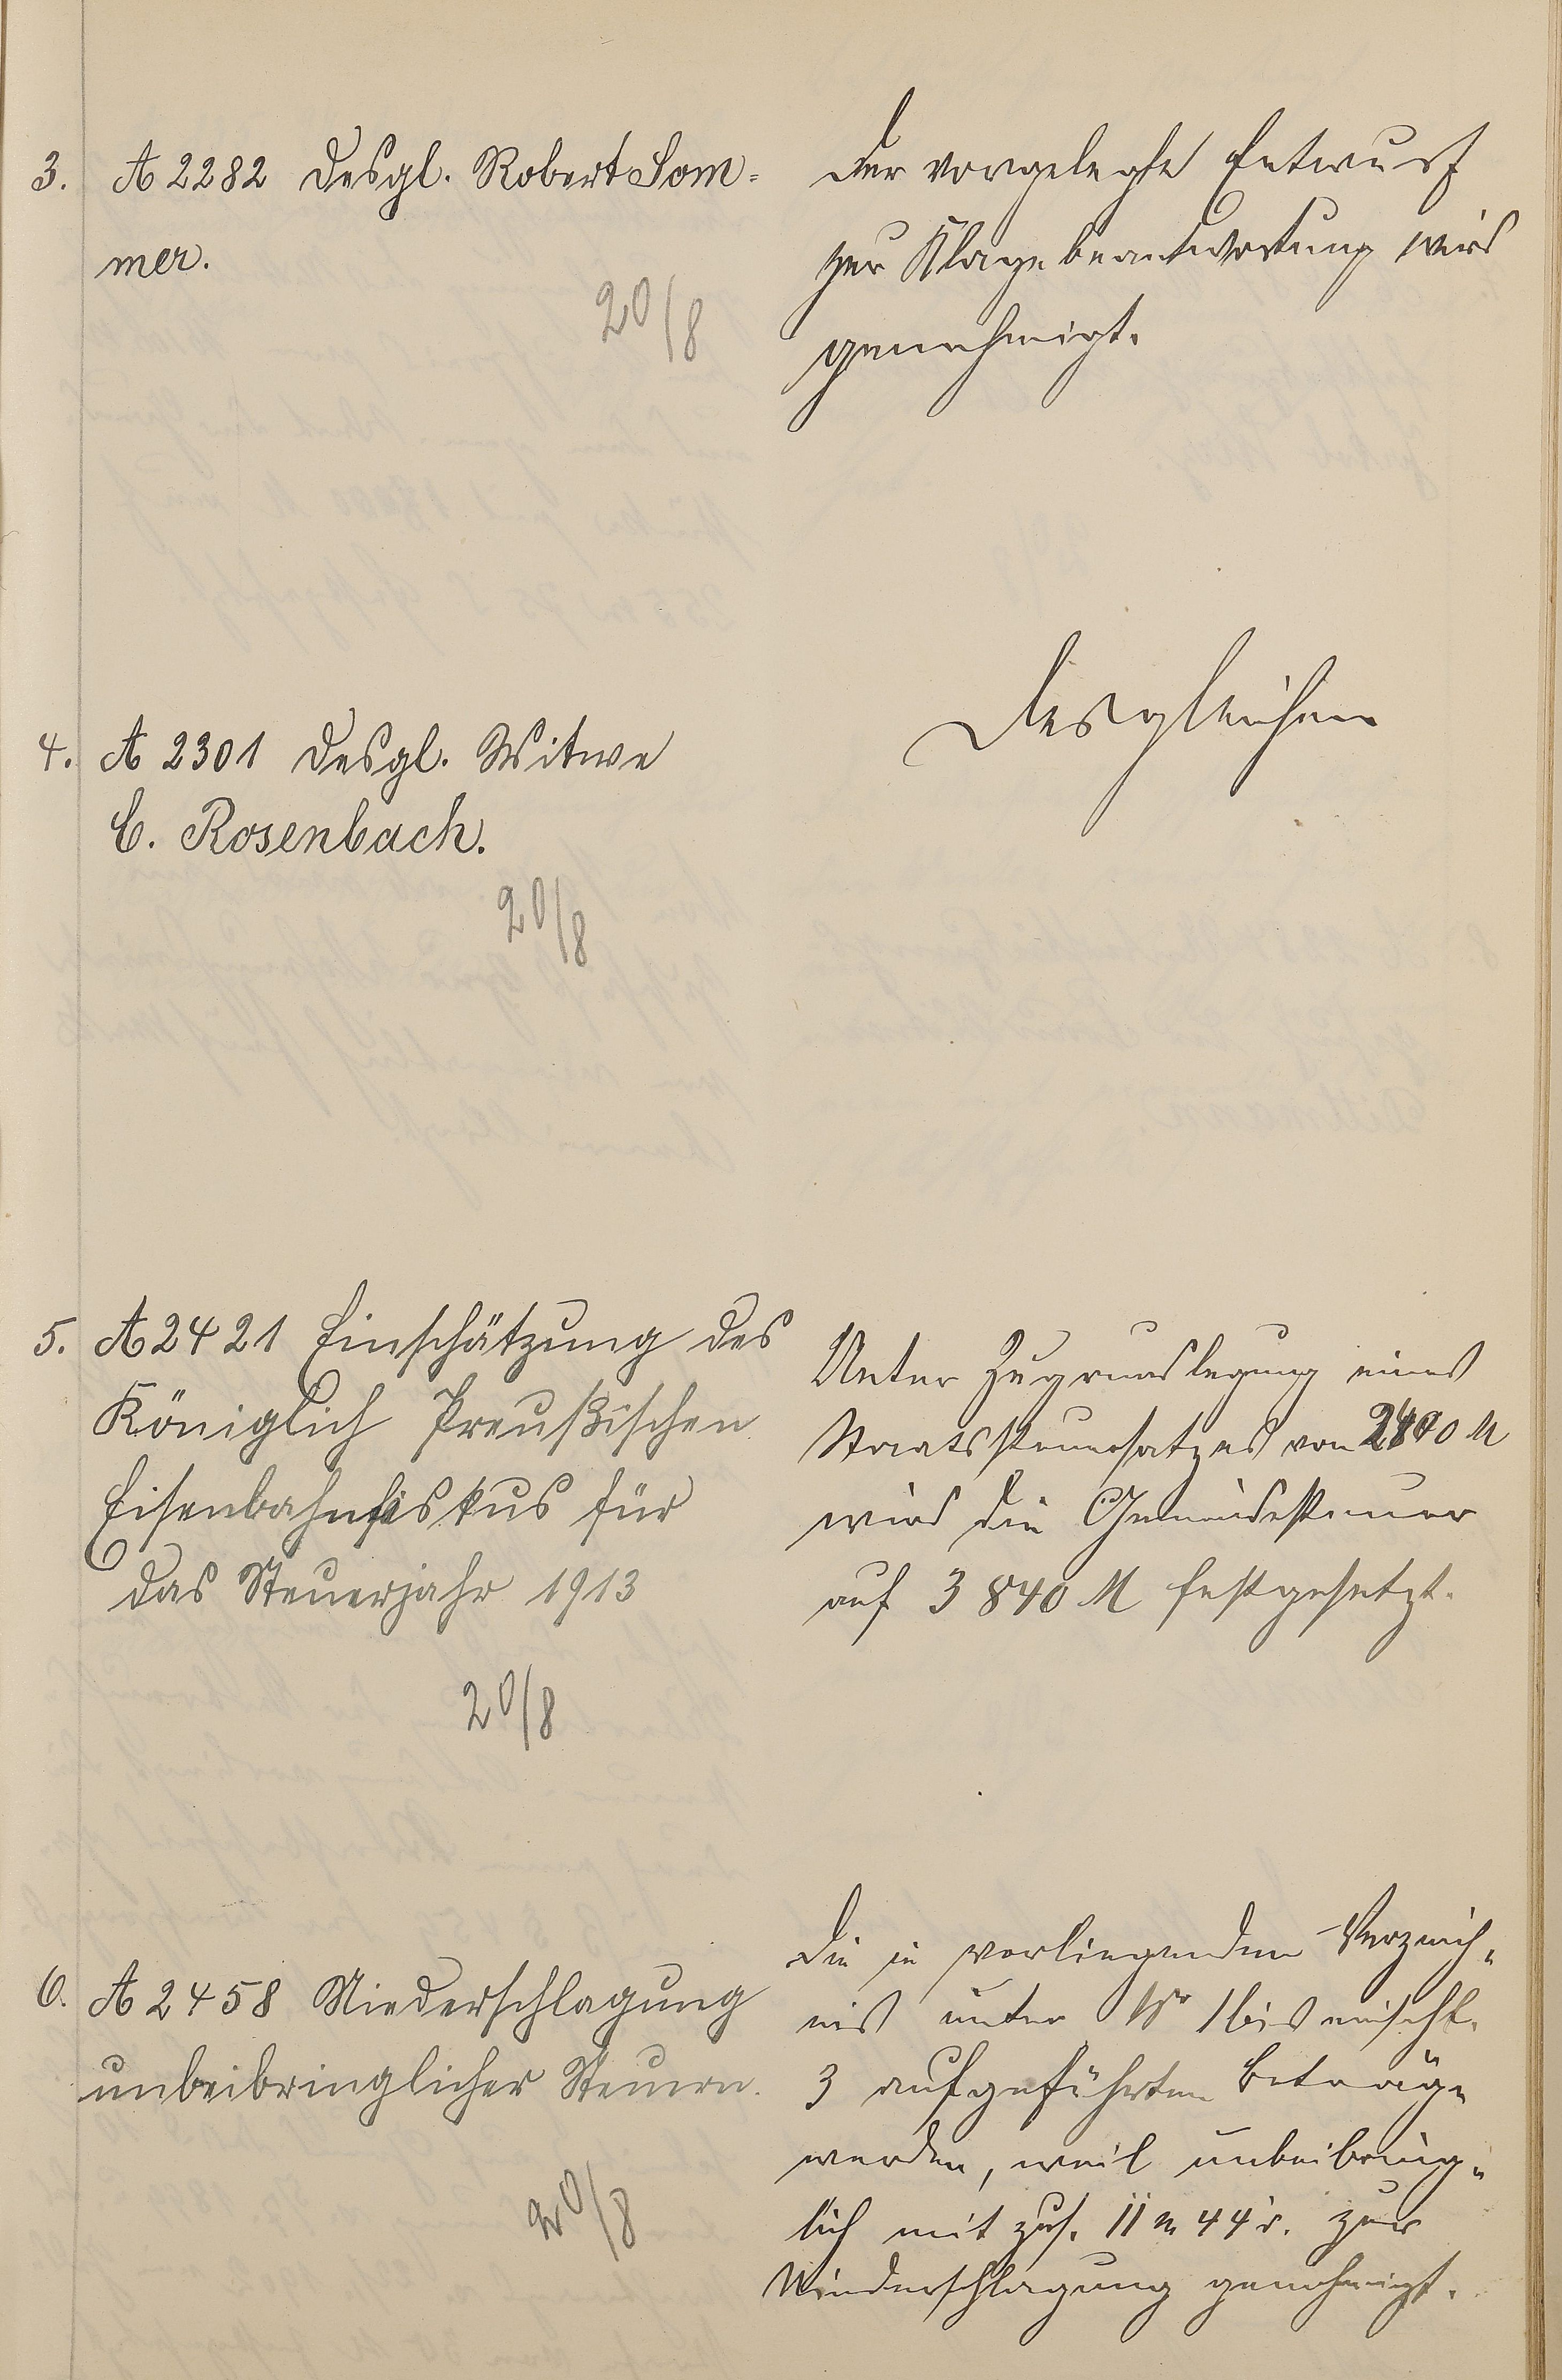 3. A 2282 desgl. Robert Som-
mer.
20/8
Der vorgelegte Entwurf
zur Klagebeantwortung wird
genehmigt.
4. A 2301 desgl. Witwe
C. Rosenbach.
20/8
Desgleichen
5. A 2421 Einschätzung des
Königlich Preußischen
Eisenbahnfiskus für
das Steuerjahr 1913
20/8
Unter Zugrundelegung eines
Staatssteuersatzes von M
wird die Gemeindesteuer
auf 3 840 M festgesetzt.
6. A 2458 Niederschlagung
unbeibringlicher Steuern.
20/8
Die in vorliegendem Verzeich-
nis unter No 1 bis einschl.
3 aufgeführten Beträge
werden, weil unbeibring-
lich mit zus. 11 M 44 zur
Niederschlagung genehmigt.